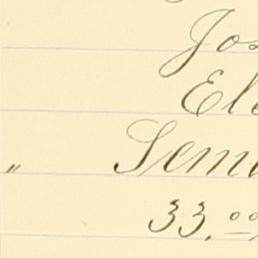 Jos
Ele
" Sem
33.00